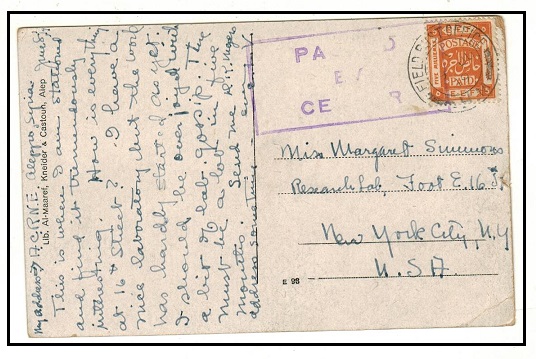 My address: A.C.R.N.E. Aleppo, Syria.
This is where I am stationed
and find it tremendously
interesting. How is everything
at 16th Street? I have a
nice laboratory but the work
has hardly started as yet.
I should be overjoyed with
a bit of lab gossip. There
must be a lot in five
months. Send me
address sometime.
Lib. Al-Maaref, Kneider & Castoun, Alep
PA
CE R
FIELD
POSTAGE
PAID
FIVE MILLIEMES
Miss Margaret Simmons
Research Lab, Foot E. 16 St
New York City, N.Y
U.S.A.
98